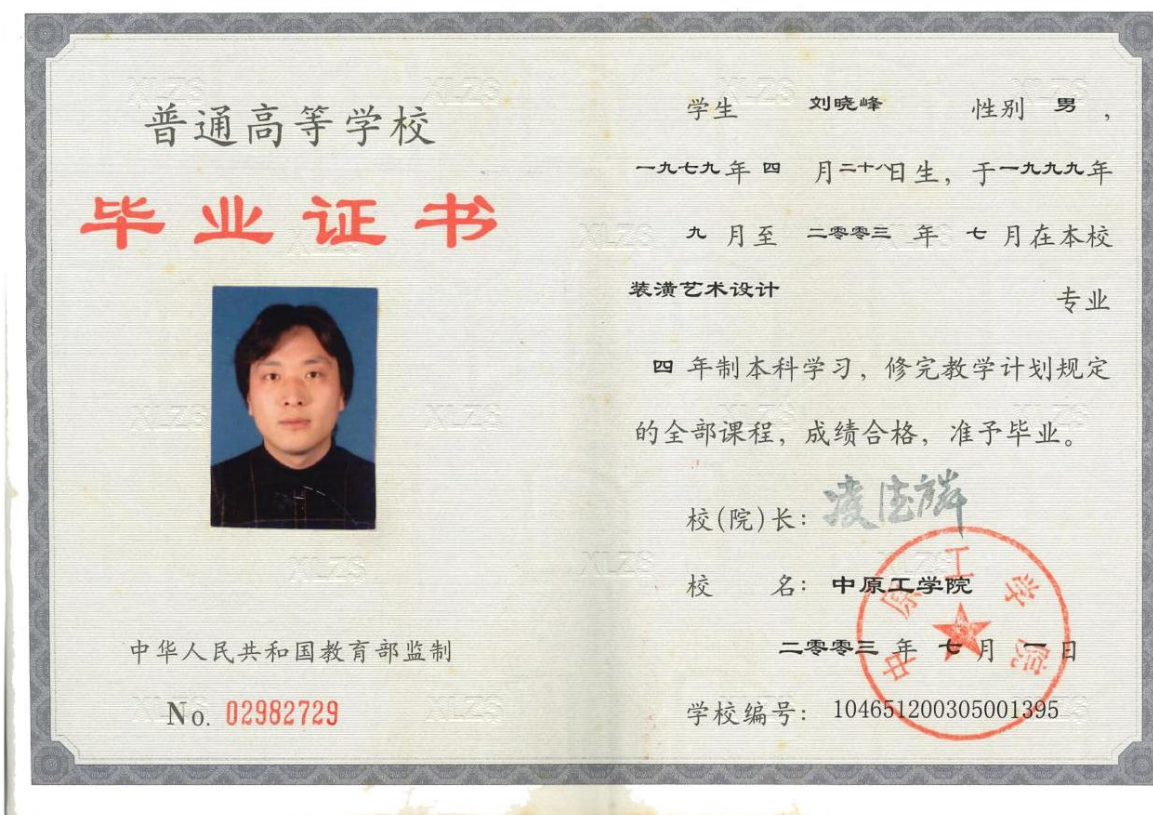 普通高等学校
毕业证书
中华人民共和国教育部监制
No. 02982729
学生 刘晓峰 性别 男，
一九七九年 四 月二十八日生，于一九九九年
九 月至 二零零三 年 七 月在本校
装潢艺术设计 专业
四 年制本科学习，修完教学计划规定
的全部课程，成绩合格，准予毕业。
校(院)长：凌德麟
校 名：中原工学院
二零零三 年 七 月 一 日
学校编号：104651200305001395
中原工学院
XLZS